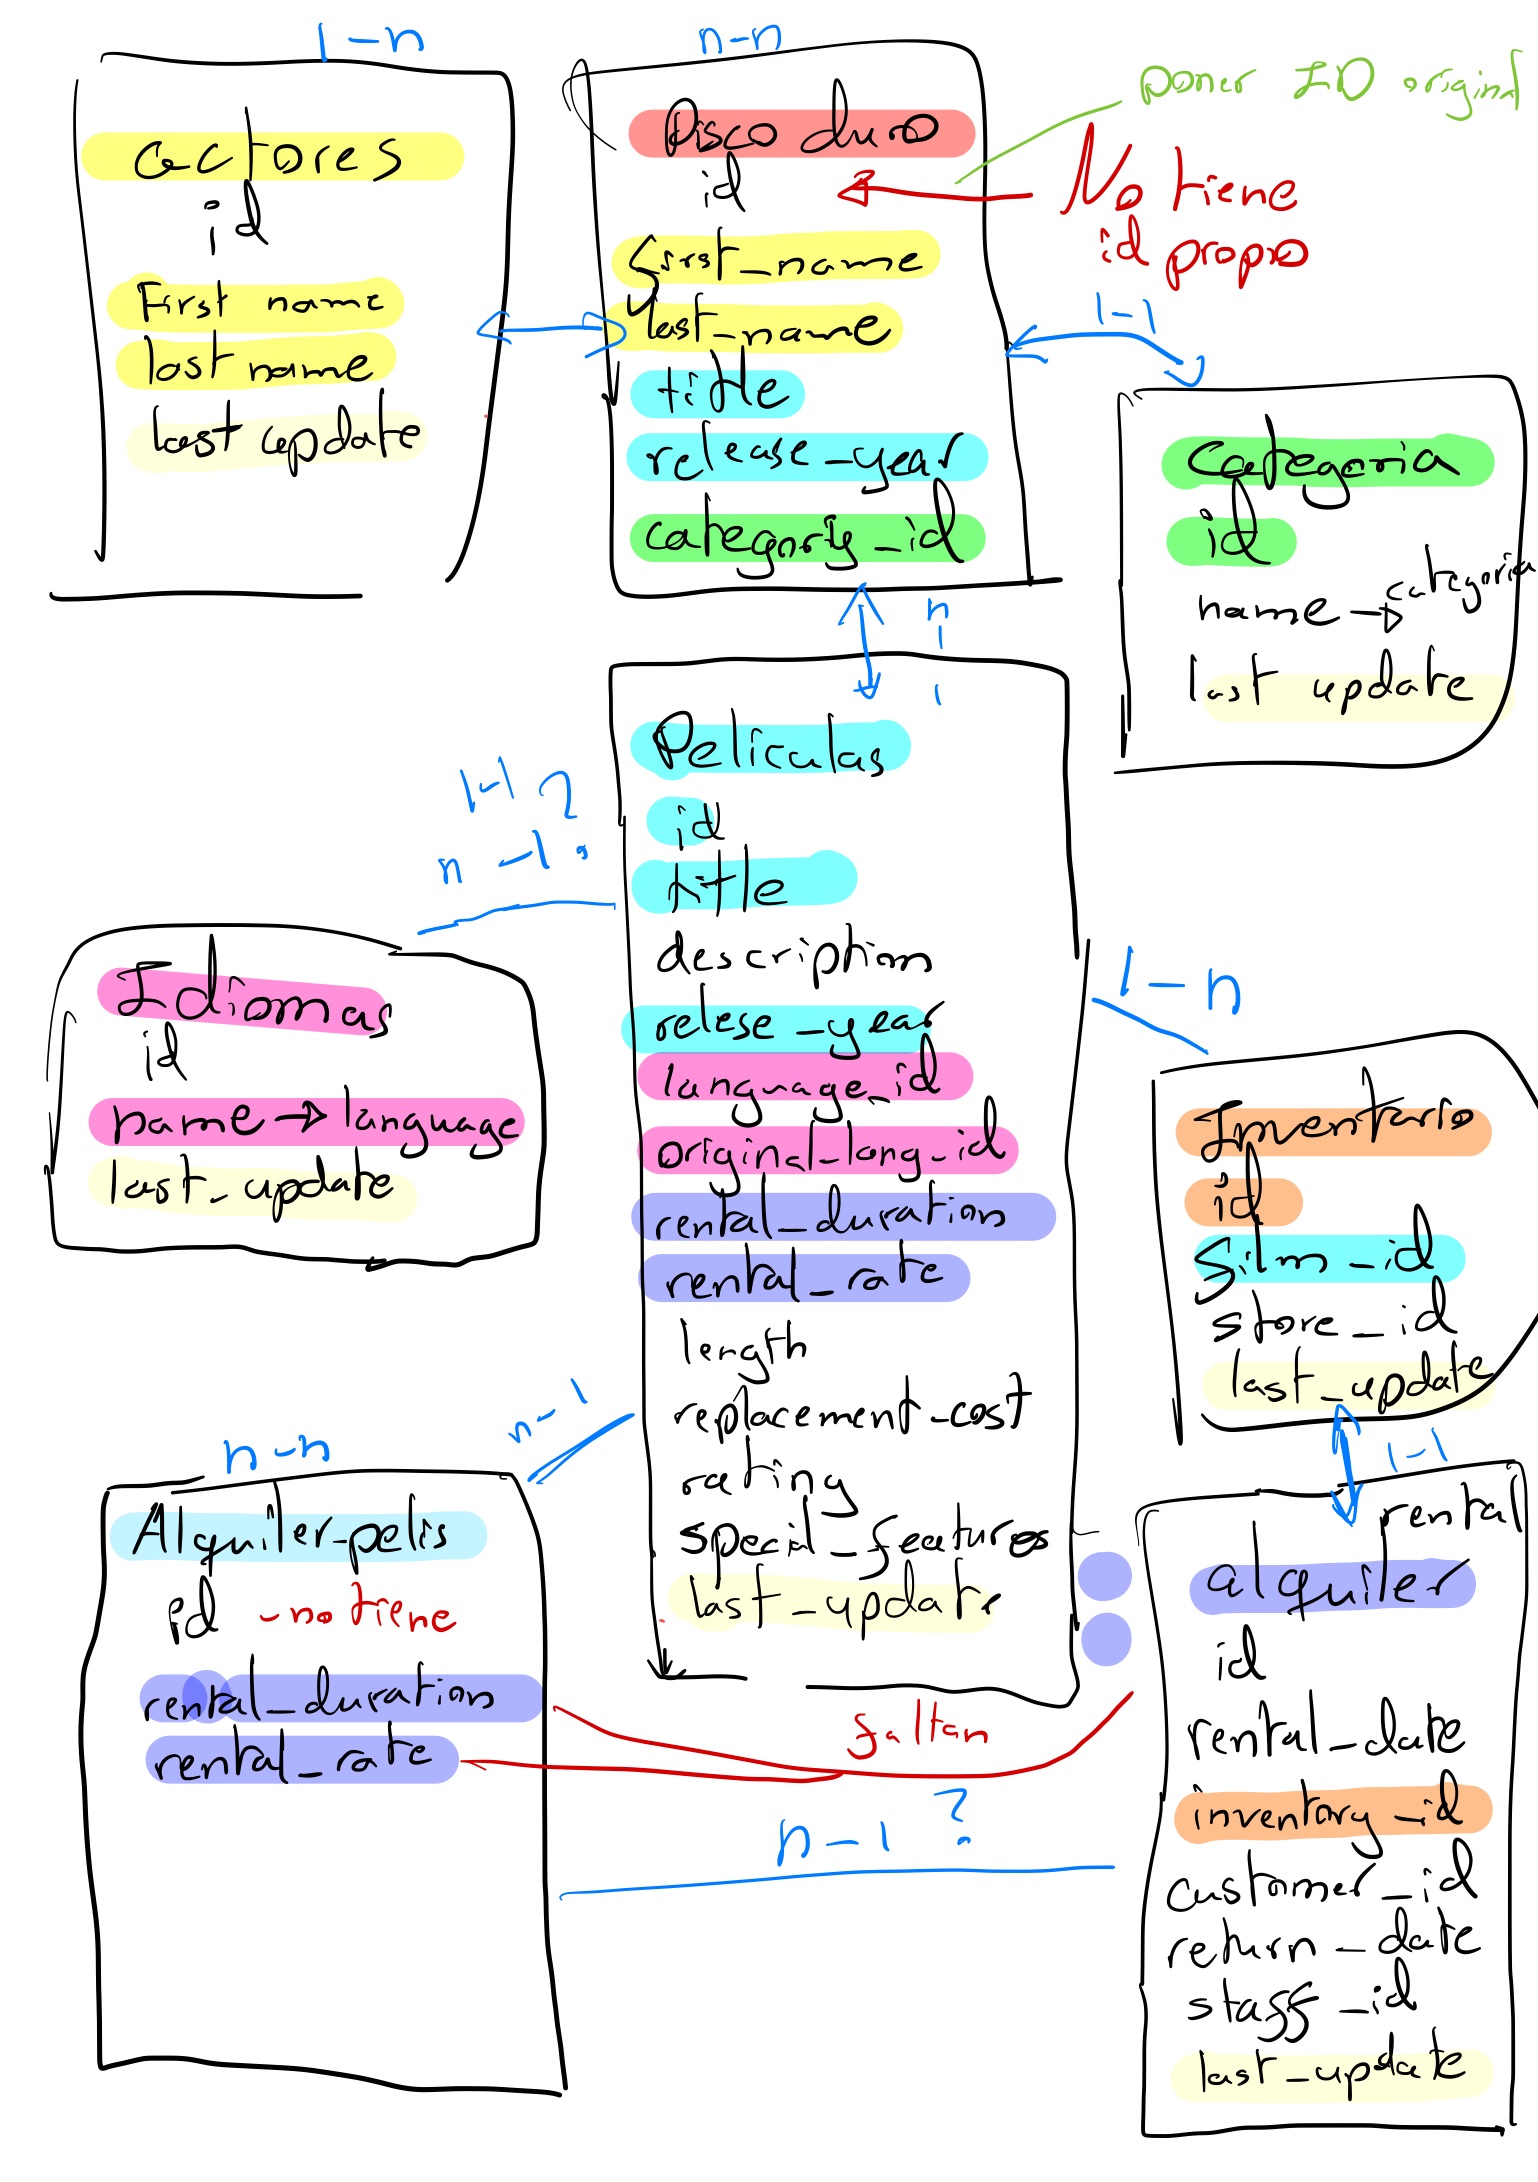 1-n
actores
id
First name
last name
last update
n-n
Disco duro
id
first_name
last_name
title
release_year
category_id
poner ID original
No tiene
id propio
1-1
Categoria
id
name → categoria
last update
n
1
Peliculas
id
title
description
relese_year
language_id
original_lang_id
rental_duration
rental_rate
length
replacement_cost
rating
special_features
last_update
1-1 ?
n-1
Idiomas
id
name → language
last_update
1-n
Inventario
id
film_id
store_id
last_update
1-1
n-1
n-n
Alquiler-pelis
id - no tiene
rental_duration
rental_rate
faltan
n-1 ?
rental
alquiler
id
rental_date
inventory_id
customer_id
return_date
staff_id
last_update